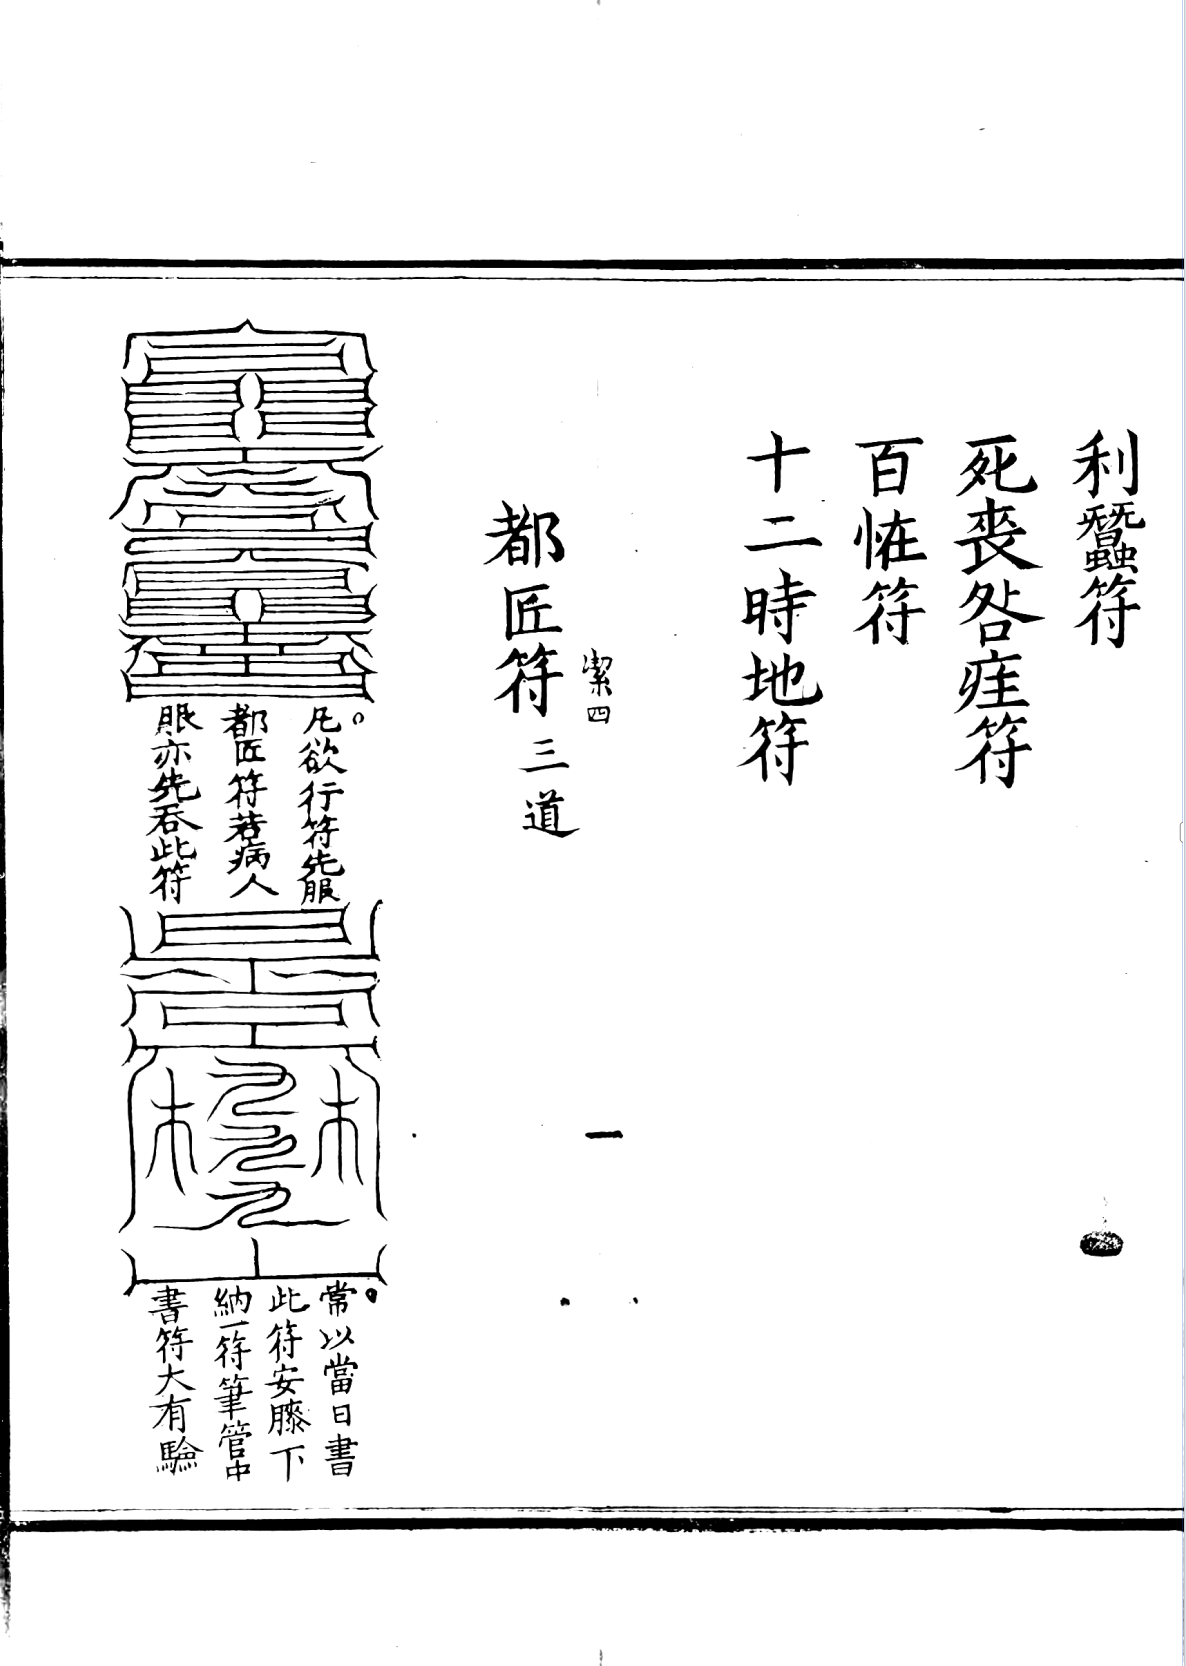 利蠶符
死喪咎疰符
百怪符
十二時地符
潔四
一
都匠符三道
凡欲行符先服
都匠符若病人
服亦先吞此符
常以當日書
此符安膝下
納一符筆管中
書符大有驗